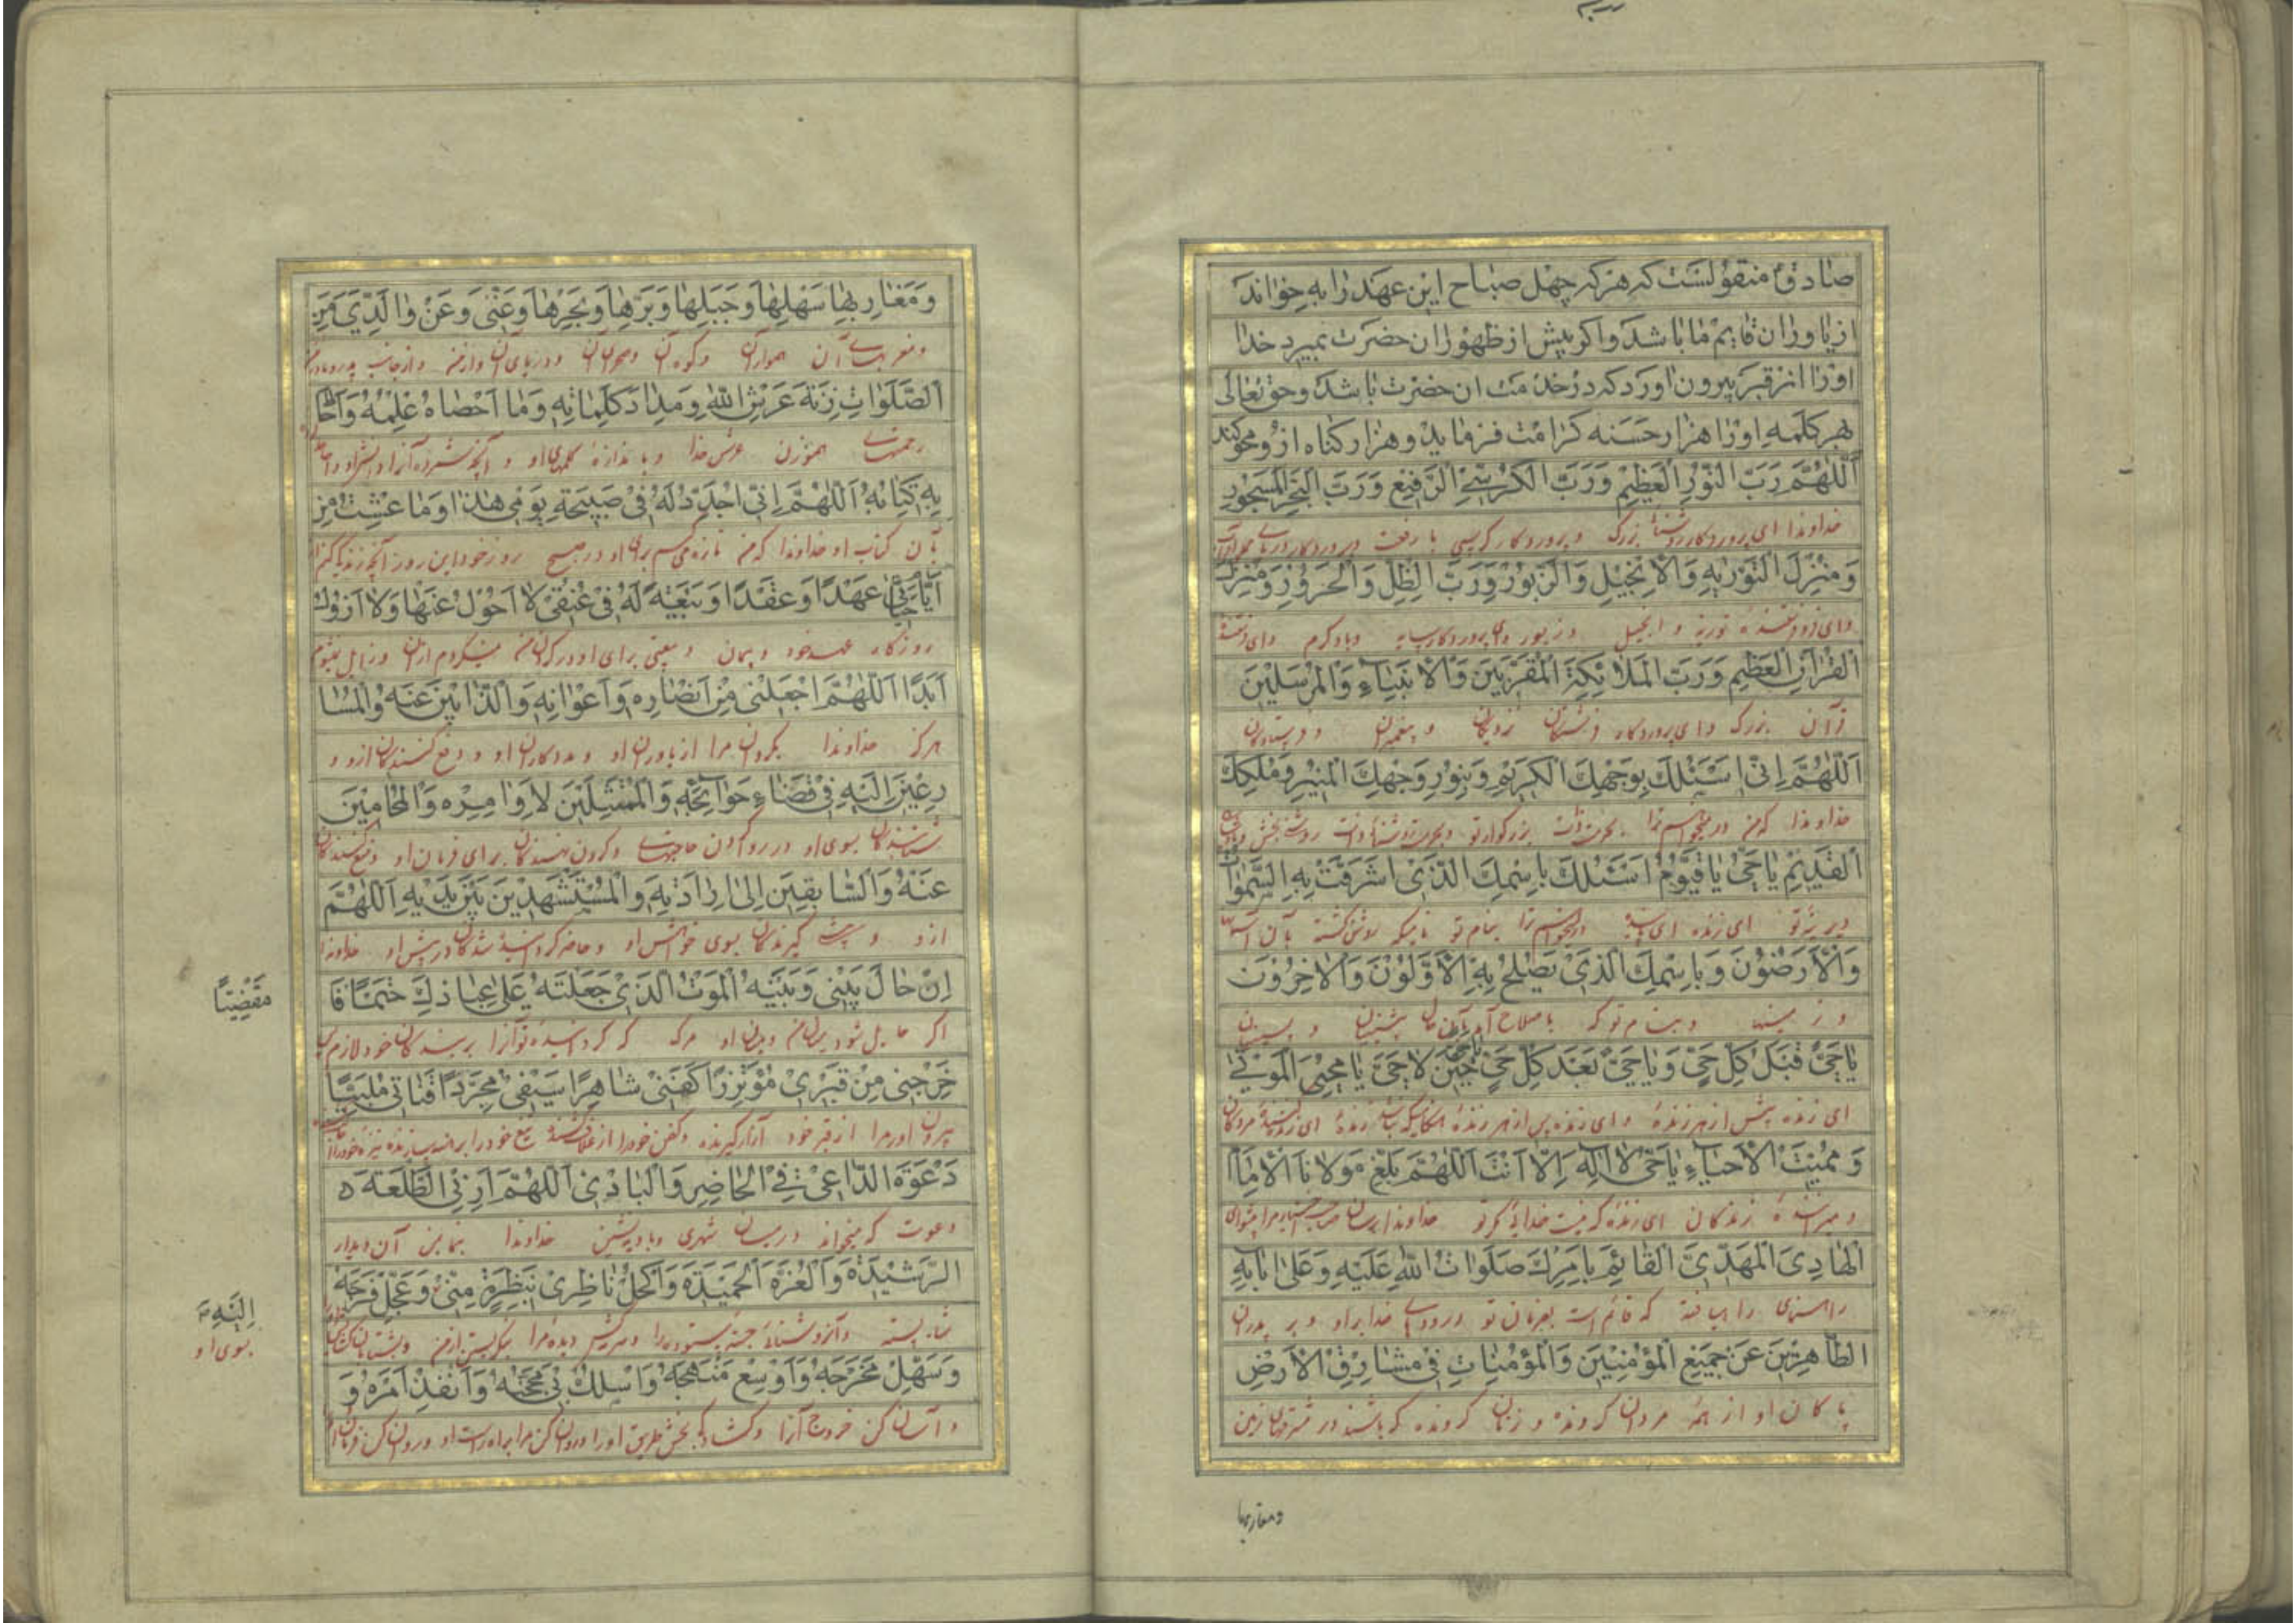 صادق منقولست که هرکه چهل صباح این عهد را بخواند
از یاوران قایم ما باشد و اکر پیش از ظهور ان حضرت بمیرد خدا
اورا از قبر بیرون اورد که در خدمت ان حضرت باشد و حق تعالی
بهر کلمه اورا هزار حسنه کرامت فرماید و هزار کناه ازو محو کند
اَللّٰهُمَّ رَبَّ النُّورِ الْعَظِيمِ وَرَبَّ الْكُرْسِيِّ الرَّفِيعِ وَرَبَّ الْبَحْرِ الْمَسْجُورِ
خداوندا ای پروردکار روشنائی بزرک و پروردکار کرسی با رفعت و پروردکار دریای
وَمُنْزِلَ التَّوْرٰيةِ وَالْاِنْجِيلِ وَالزَّبُورِ وَرَبَّ الظِّلِّ وَالْحَرُورِ وَمُنْزِلَ
وای فروفرستنده توریة و انجیل و زبور و ای پروردکار سایه و باد کرم وای فرستنده
الْقُرْاٰنِ الْعَظِيمِ وَرَبَّ الْمَلَائِكَةِ الْمُقَرَّبِينَ وَالْاَنْبِيَاءِ وَالْمُرْسَلِينَ
قرآن بزرک وای پروردکار فرشتکان نزدیکان و پیغمبران و فرستادکان
اَللّٰهُمَّ اِنِّي اَسْئَلُكَ بِوَجْهِكَ الْكَرِيمِ وَبِنُورِ وَجْهِكَ الْمُنِيرِ وَمُلْكِكَ
خداوندا که من درمیخواهم ترا بحرمت ذات بزرکوار تو و بحرمت روشنائی ذات روشنی بخش
الْقَدِيمِ يَا حَيُّ يَا قَيُّومُ اَسْئَلُكَ بِاسْمِكَ الَّذِي اَشْرَقَتْ بِهِ السَّمٰوَاتُ
دیرینه تو ای زنده ای پاینده درمیخواهم ترا بنام تو نامیکه روشن کشته بآن
وَالْاَرَضُونَ وَبِاسْمِكَ الَّذِي يَصْلَحُ بِهِ الْاَوَّلُونَ وَالْاٰخِرُونَ
و زمینها و بنام تو که باصلاح آمد بآن حال پیشینیان و پسینیان
يَا حَيُّ قَبْلَ كُلِّ حَيٍّ وَيَا حَيُّ بَعْدَ كُلِّ حَيٍّ يَا حَيُّ حِينَ لَا حَيَّ يَا مُحْيِيَ الْمَوْتٰى
ای زنده پیش از هر زنده و ای زنده پس از هر زنده هنکامیکه نباشد زنده ای زنده کننده مردکان
وَمُمِيتَ الْاَحْيَاءِ يَا حَيُّ لَا اِلٰهَ اِلَّا اَنْتَ اَللّٰهُمَّ بَلِّغْ مَوْلَانَا الْاِمَامَ
و میراننده زندکان ای زنده که نیست خدائی مکر تو خداوندا برسان صاحب اختیار مرا پیشوای
الْهَادِيَ الْمَهْدِيَّ الْقَائِمَ بِاَمْرِكَ صَلَوَاتُ اللّٰهِ عَلَيْهِ وَعَلٰى اٰبَائِهِ
راهنمای راه یافته که قائم است بفرمان تو درودهای خدا بر او و بر پدران
الطَّاهِرِينَ عَنْ جَمِيعِ الْمُؤْمِنِينَ وَالْمُؤْمِنَاتِ فِي مَشَارِقِ الْاَرْضِ
پاکان او از همه مردان کرونده و زنان کرونده که باشند در مشرقهای زمین
ومغاربها
وَمَغَارِبِهَا سَهْلِهَا وَجَبَلِهَا وَبَرِّهَا وَبَحْرِهَا وَعَنِّي وَعَنْ وَالِدَيَّ مِنَ
و مغربهای آن هموار آن و کوه آن و صحرای آن و دریای آن و از من و از جانب پدر و مادر من
الصَّلَوَاتِ زِنَةَ عَرْشِ اللّٰهِ وَمِدَادَ كَلِمَاتِهِ وَمَا اَحْصَاهُ عِلْمُهُ وَاَحَاطَ
رحمتهای هموزن عرش خدا و باندازه کلمهای او و آنچه شمرده آنرا دانش او و
بِهِ كِتَابُهُ اَللّٰهُمَّ اِنِّي اُجَدِّدُ لَهُ فِي صَبِيحَةِ يَوْمِي هٰذَا وَمَا عِشْتُ مِنْ
بآن کتاب او خداوندا که من تازه میکنم برای او در صبح روز خود این روز و آنچه زندکانی کنم از
اَيَّامِي عَهْدًا وَعَقْدًا وَبَيْعَةً لَهُ فِي عُنُقِي لَا اَحُولُ عَنْهَا وَلَا اَزُولُ
روزکار عهد خود و پیمان و بیعتی برای او در کردن من نمیکردم از آن و زایل نمیشوم
اَبَدًا اَللّٰهُمَّ اجْعَلْنِي مِنْ اَنْصَارِهِ وَاَعْوَانِهِ وَالذَّابِّينَ عَنْهُ وَالْمُسَا
هرکز خداوندا بکردان مرا از یاوران او و مددکاران او و دفع کنندکان از او و
رِعِينَ اِلَيْهِ فِي قَضَاءِ حَوَائِجِهِ وَالْمُمْتَثِلِينَ لِاَوَامِرِهِ وَالْمُحَامِينَ
شتابندکان بسوی او در روا کردن حاجتهای و کردن نهندکان برای فرمان او و منع کنندکان
عَنْهُ وَالسَّابِقِينَ اِلٰى اِرَادَتِهِ وَالْمُسْتَشْهَدِينَ بَيْنَ يَدَيْهِ اَللّٰهُمَّ
از او و پیشی کیرندکان بسوی خواهش او و حاضر کردانیده شدکان در پیش او خداوندا
اِنْ حَالَ بَيْنِي وَبَيْنَهُ الْمَوْتُ الَّذِي جَعَلْتَهُ عَلٰى عِبَادِكَ حَتْمًا فَا
مَقْضِيًّا
اکر حایل شود میان من و میان او مرک که کردانیده تو آنرا بر بندکان خود لازم
خْرِجْنِي مِنْ قَبْرِي مُؤْتَزِرًا كَفَنِي شَاهِرًا سَيْفِي مُجَرِّدًا قَنَاتِي مُلَبِّيًا
بیرون اور مرا از قبر خود ازار کیرنده کفن خود را از غلاف کشنده تیغ خود را برهنه سازنده نیزه خود را
دَعْوَةَ الدَّاعِي فِي الْحَاضِرِ وَالْبَادِي اَللّٰهُمَّ اَرِنِي الطَّلْعَةَ
دعوت که میخواند در میان شهری و بادیه نشین خداوندا بنما بمن آن دیدار
الرَّشِيدَةَ وَالْغُرَّةَ الْحَمِيدَةَ وَاكْحُلْ نَاظِرِي بِنَظْرَةٍ مِنِّي وَعَجِّلْ فَرَجَهُ
اِلَيْهِ
بسوی او
شایسته و آن روشنائی جبهه ستوده را و سرمه کش دیده مرا بنکریستن از من و بشتابان
وَسَهِّلْ مَخْرَجَهُ وَاَوْسِعْ مَنْهَجَهُ وَاسْلُكْ بِي مَحَجَّتَهُ وَاَنْفِذْ اَمْرَهُ وَ
و آسان کن خروج آنرا و کشادکی بخش طریق او را و روان کن مرا براه راست او و روان کن فرمان او